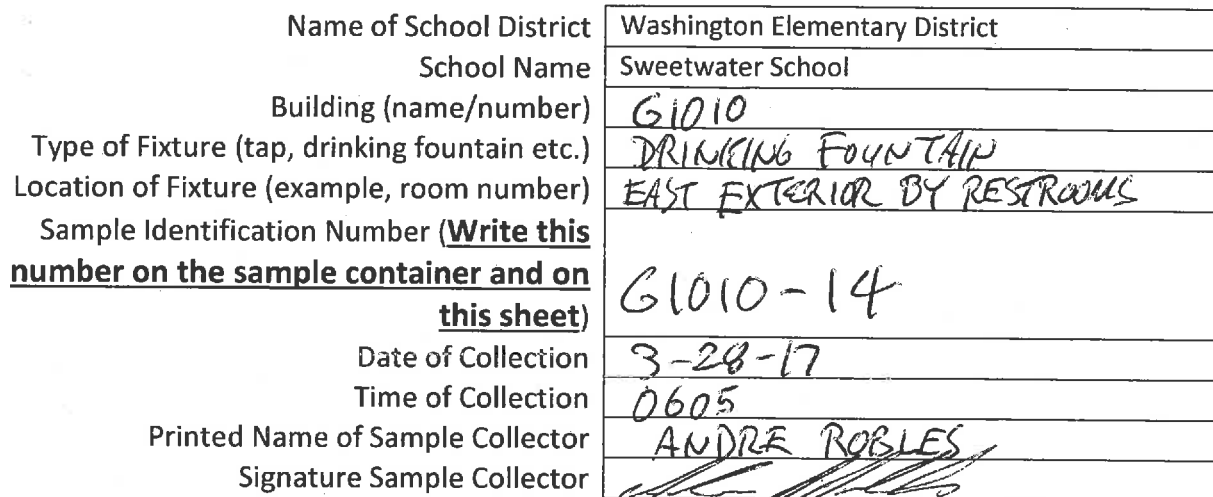 Name of School District Washington Elementary District
School Name Sweetwater School
Building (name/number) G1010
Type of Fixture (tap, drinking fountain etc.) DRINKING FOUNTAIN
Location of Fixture (example, room number) EAST EXTERIOR BY RESTROOMS
Sample Identification Number (Write this
number on the sample container and on
this sheet) G1010-14
Date of Collection 3-28-17
Time of Collection 0605
Printed Name of Sample Collector ANDRE ROBLES
Signature Sample Collector